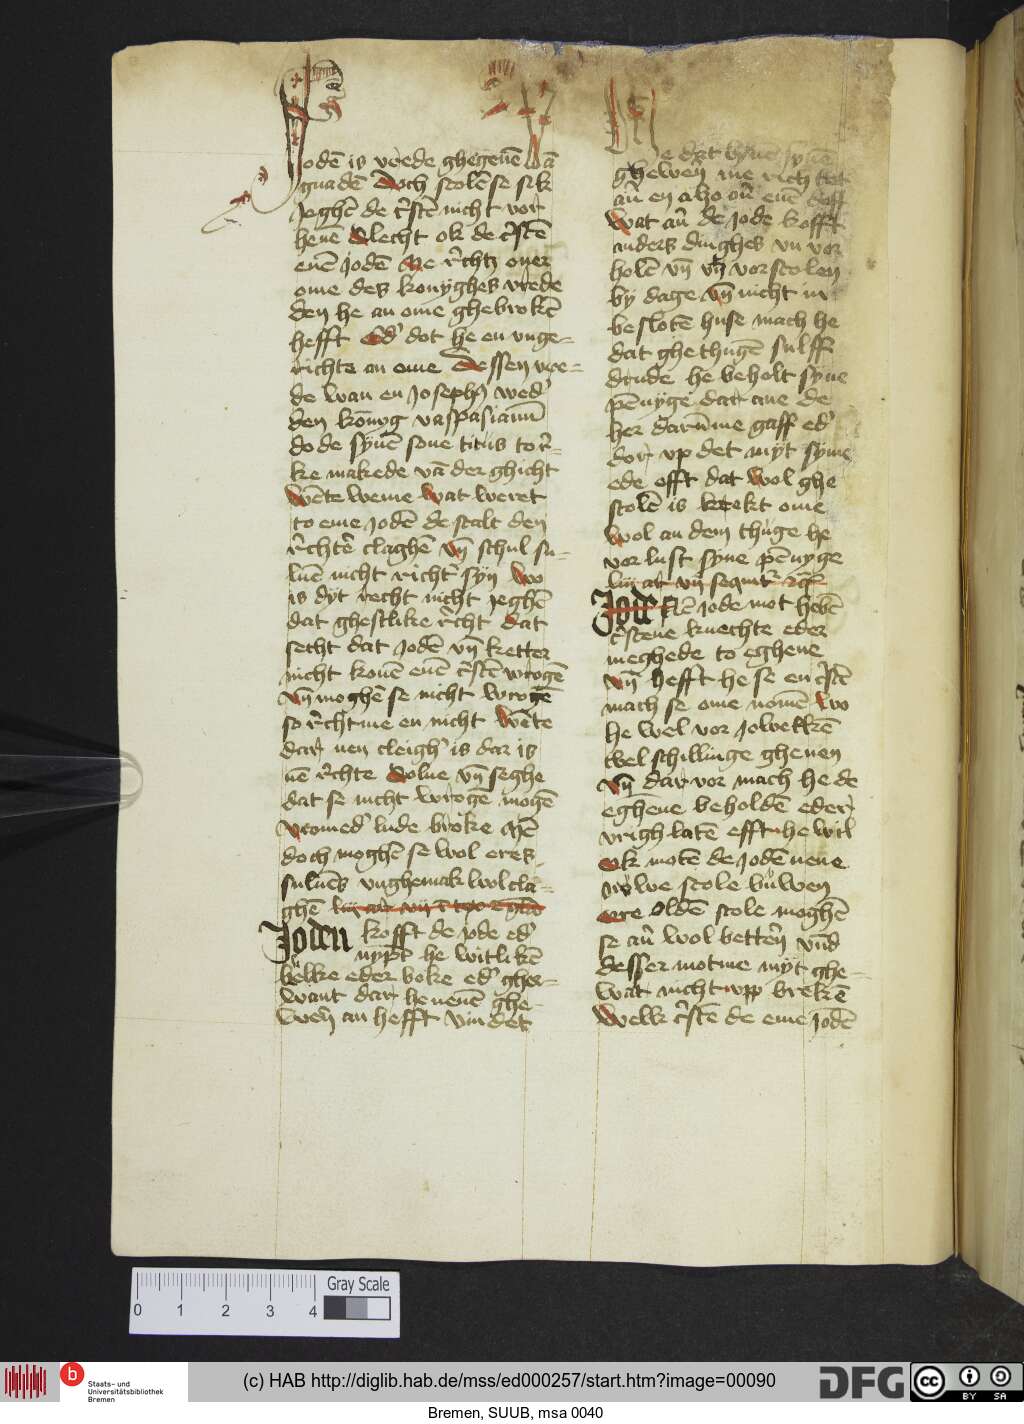 Jodē is vrede ghegeuē vā
gnadē Doch scolē se sik
Jeghē de c̄stē nicht vor
heuē Slecht ok de c̄stē
enē Jodē Me r̄chtz ouer
ome des konyghes vrede
den he an ome ghebrokē
hefft Ed' dot he en vnge-
richte an ome Dessen vre-
de wan en Joseph9 wed'
den konīg vaspasianū
do de synē sone titus to r̄-
ke makede vā der ghicht
Wēte weme wat weret
to eme Jodē de scalt den
r̄chtē claghē vn̄ schul su-
luē nicht richt' syn Wo
is dyt recht nicht Jeghē
dat ghestlike r̄cht dat
secht dat Jodē vn̄ ketter
nicht konē enē c̄stē wrogē
vn̄ moghē se nicht wrogē
so r̄cht me en nicht Wēte
dar nen cleigh' is dar is
nē r̄chte Volue vn̄ seghe
dat se nicht wrogē mogē
vromed' lude broke Mē
doch moghē se wol eres
suluēs vnghemak wol cla-
ghē
Joden kofft de Jode ed'
nympt he witlikē
kelke eder boke ed' gher-
want dar he nenē ghe-
wer̄ an hefft vindet
me dat bynnē synē
ghewerē me rich
an̄ en alzo ouer enē deff
Wat an̄ de Jode kofft
anders dinghes vn vor
holē vn̄ vn̄ vorstolen
by dage vn̄ nicht in
beslotē huse mach he
dat ghethugē sulff
drude he beholt syne
pēnyge dar ane de
he dar ūme gaff ed'
dar vp det myt syme
ede offt dat wol ghe
stolē is brekt ome
wol an dem thuge he
vor lust syne pēnyge
Jode Nē Jode mot hebē
c̄stene knechte eder
meghede to eghene
vn̄ hefft he se en c̄stē
mach se ome nomē Wo
he wel vor Jowelkē
twel schillinge gheuen
vn̄ dar vor mach he de
eghene beholdē eder
vrigh latē efft he wil
Ok motē de Jodē nene
nywe scole buwen
ere Oldē scole moghē
se an̄ wol betterē vnd
desser motme myt ghe-
wat nicht vpp brekē
Welk c̄stē de eme Jodē
0 1 2 3 4
Gray Scale
b
Staats- und
Universitätsbibliothek
Bremen
(c) HAB http://diglib.hab.de/mss/ed000257/start.htm?image=00090
DFG
cc
BY SA
Bremen, SUUB, msa 0040